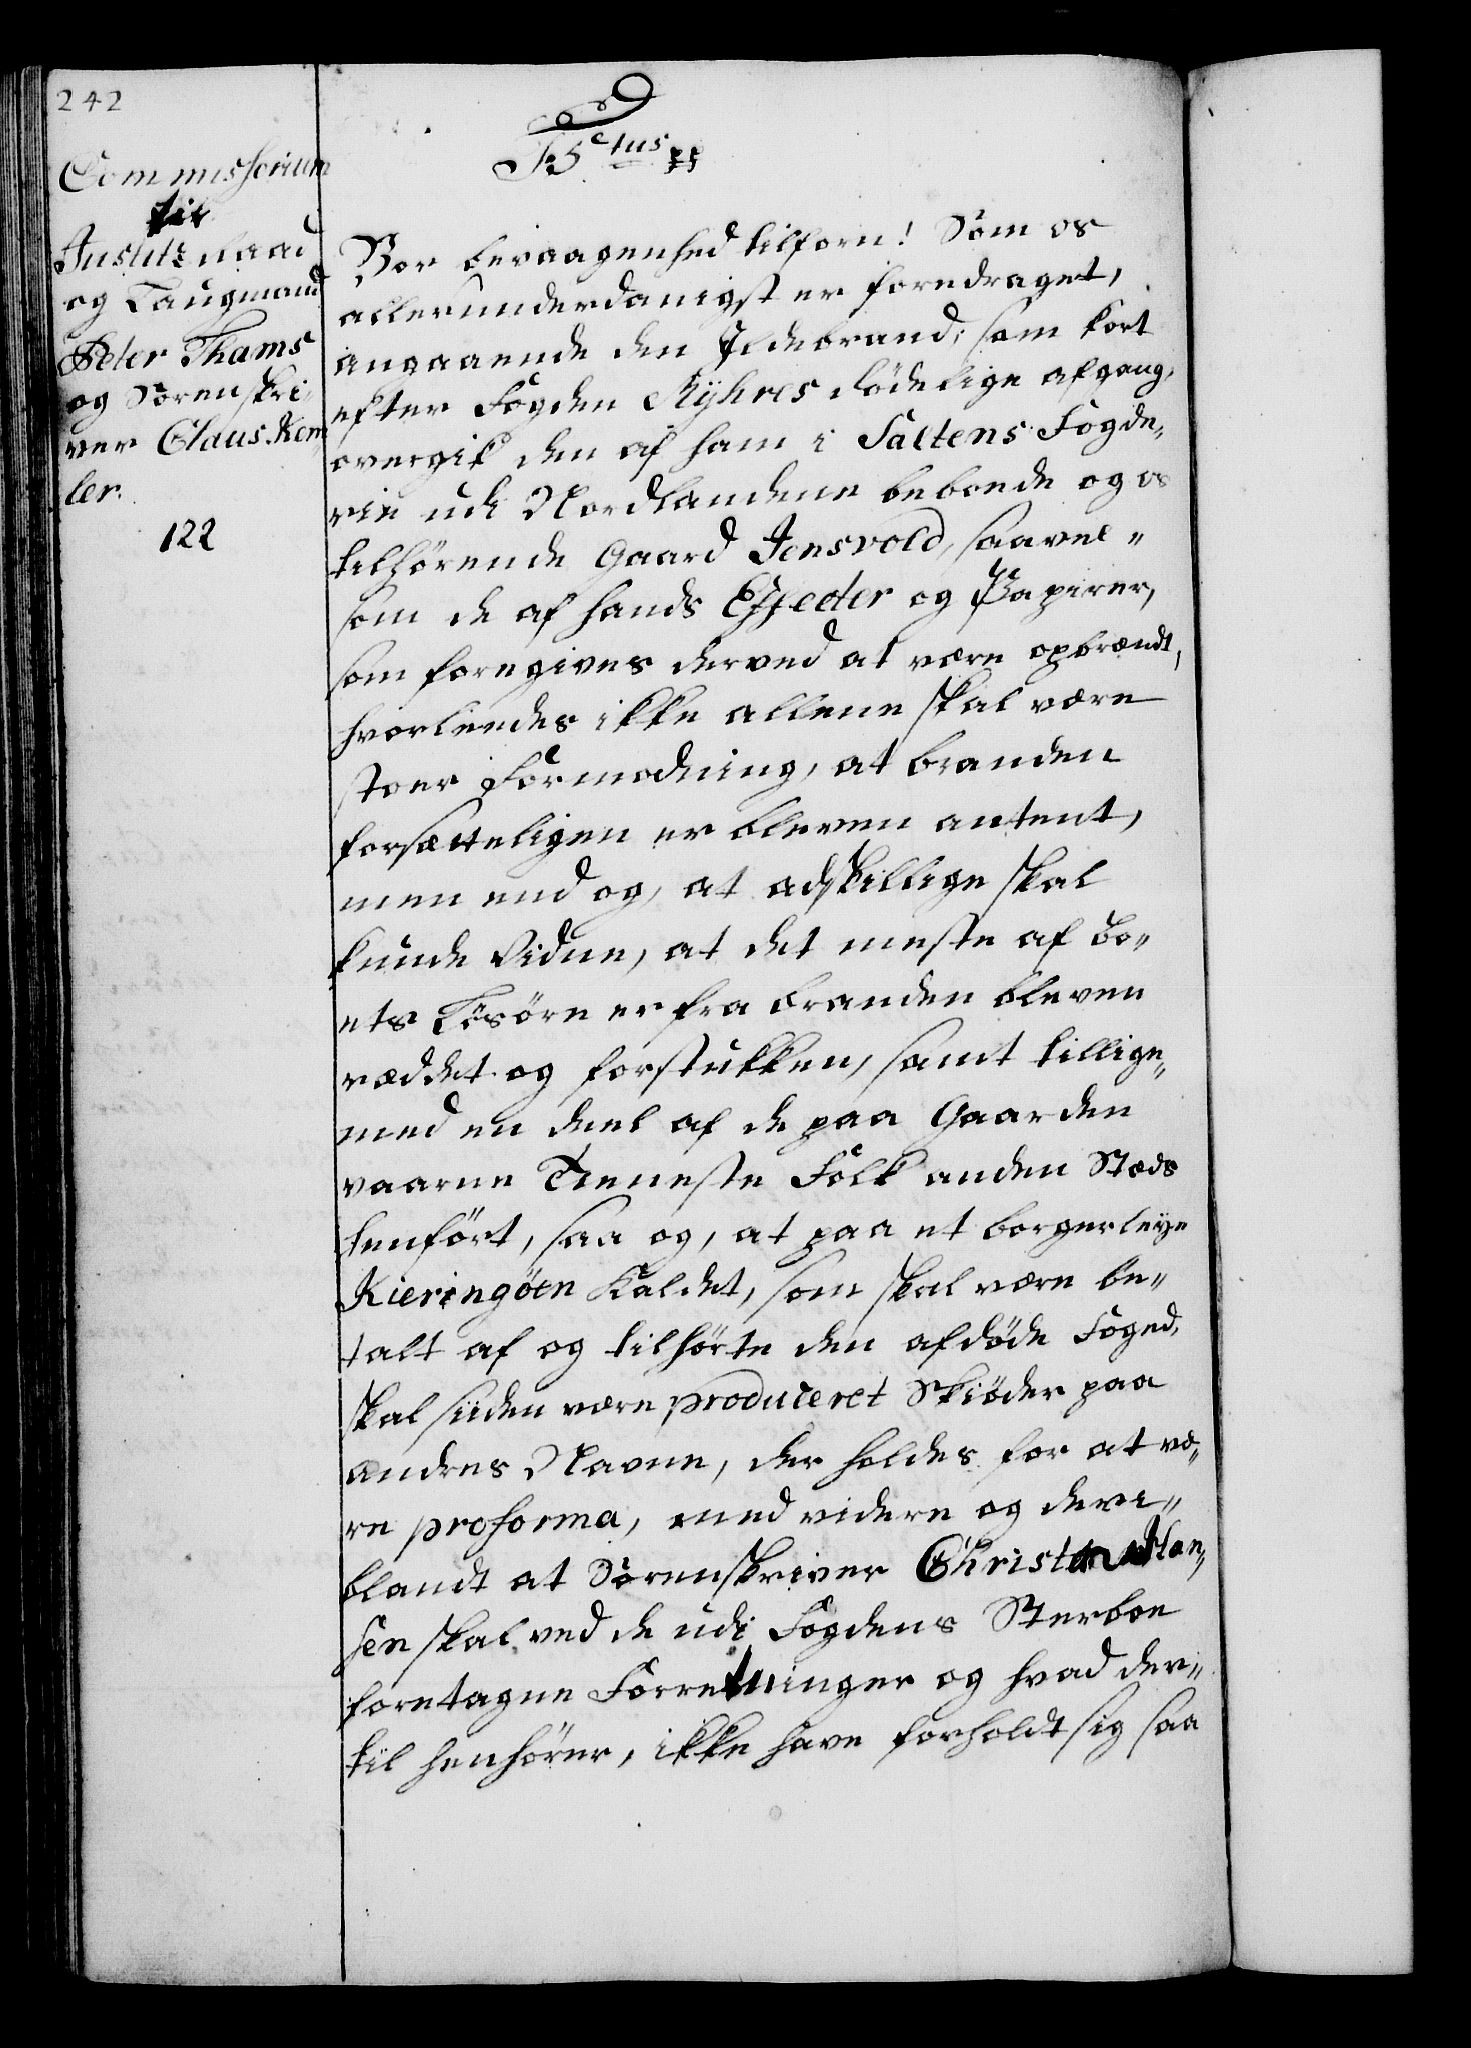 242
Commissorium
til
Justitz Raad
og Laugmand
Peter Thams
og Sorenskri-
ver Claus Kem
ler.
122
F5tus pp
Vor bevaagenhed tilforn! Som os
allerunderdanigst er foredraget,
angaaende den Ildebrand, som kort
efter Fogden Ryhres dödelige afgang,
overgik den af ham i Saltens Fogde„
rie udi Nordlandene beboede og os
tilhörende Gaard Jensvold, saavel„
som de af hands Effecter og Papirer,
som foregives derved at være opbrændt,
hvorledes ikke allene skal være
stoer Formodning, at branden
forsætteligen er bleven antent,
men end og, at adskillige skal
kunde Vidne, at det meste af bo„
ets Lösöre er fra branden bleven
reddet og forstukken, samt tillige„
med en deel af de paa Gaarden
vaarne Tieneste Folk anden Stæds
henfört, saa og, at paa et borgerleye
Kieringöen Kaldet, som skal være be„
talt af og tilhörte den afdöde Foged,
skal siiden være produceret Skiöder paa
andres Navne, der holdes for at væ„
re proforma, med videre og deri„
blandt at Sorenskriver Christen Han„
sen skal ved de udi Fogdens Sterboe
foretagne Forretninger og hvad der„
til henhörer, ikke have forholdt sig saa